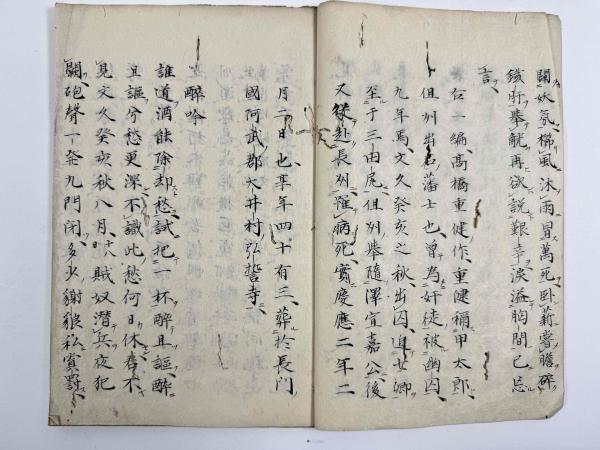 關妖氛櫛風沐雨冒萬死臥薪嘗膽碎
鐵肝擧觥再欲説艱辛淚溢胸間已忘
言
右一編髙橋重健作重健稱甲太郎
但州出石藩士也曽為奸徒被幽囚
九年焉文久癸亥之秋出囚追七卿
至于三田尻但州擧隨澤宣嘉公後
又赴長州罹病死實慶應二年二
月二日也享年四十有三葬於長門
國阿武郡大井村弘誓寺
醉吟
誰道酒能除却愁試把一杯醉且謳醉
且謳兮愁更深不識此愁何日休君不
見文久癸亥秋八月時賊奴潜兵夜犯
闕砲聲一発九門閉多少豺狼私賞罰